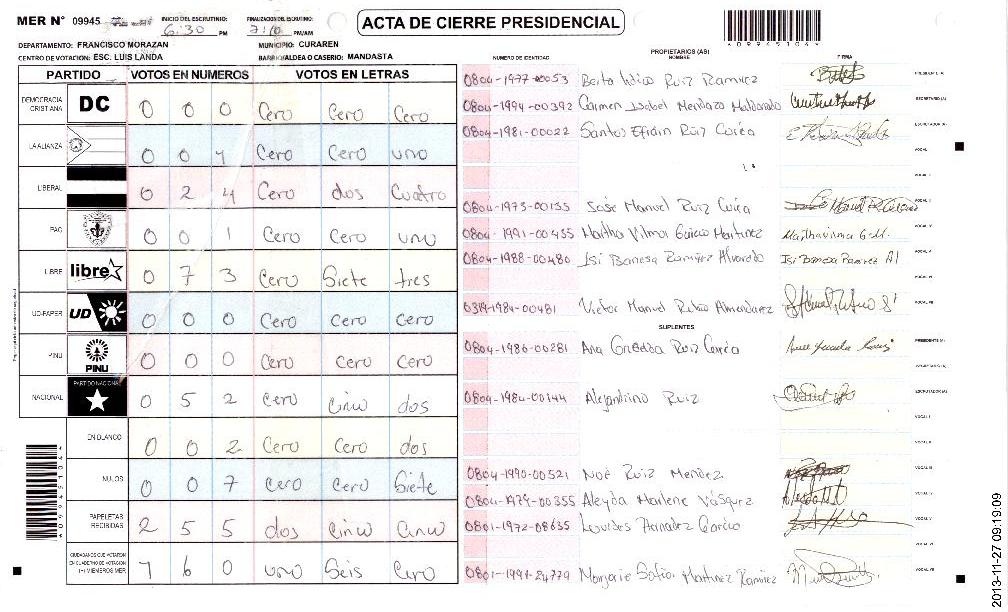 MER N° 09945
INICIO DEL ESCRUTINIO: 6:30 PM
FINALIZACION DEL ESCRUTINIO: PM/AM
ACTA DE CIERRE PRESIDENCIAL
DEPARTAMENTO: FRANCISCO MORAZAN
MUNICIPIO: CURAREN
CENTRO DE VOTACION: ESC. LUIS LANDA
BARRIO/ALDEA O CASERIO: MANDASTA
PARTIDO VOTOS EN NUMEROS VOTOS EN LETRAS
DEMOCRACIA CRISTIANA DC 0 0 0 Cero Cero Cero
LA ALIANZA 0 0 1 Cero Cero uno
LIBERAL 0 2 4 Cero dos Cuatro
PAC 0 0 1 Cero Cero uno
LIBRE libre 0 7 3 Cero Siete tres
UD-FAPER UD 0 0 0 Cero Cero Cero
PINU PINU 0 0 0 Cero Cero Cero
NACIONAL PARTIDO NACIONAL 0 5 2 Cero Cinco dos
EN BLANCO 0 0 2 Cero Cero dos
NULOS 0 0 7 Cero Cero Siete
PAPELETAS RECIBIDAS 2 5 5 dos Cinco Cinco
CIUDADANOS QUE VOTARON EN CUADERNO DE VOTACION (+) MIEMBROS MER 1 6 0 uno Seis Cero
NUMERO DE IDENTIDAD PROPIETARIOS (AS) NOMBRE FIRMA
0804-1977-00053 Ruiz Ramirez PRESIDENTE (A)
0804-1994-00392 Carmen Isabel Mendoza Maldonado SECRETARIO (A)
0804-1981-00022 Santos Efidin Ruiz ESCRUTADOR (A)
VOCAL I
0804-1973-00135 José Manuel Ruiz VOCAL II
0804-1991-00455 Martha Vilma Garcia Martinez
0804-1988-00480 Isi Banesa Ramirez Alvarado Isi Banesa Ramirez Al
0319-1984-00481 Victor Manuel Rubio Almendarez VOCAL VII
SUPLENTES
0804-1986-00281 Ana Ruiz PRESIDENTE (A)
SECRETARIO (A)
0804-1984-00144 Alejandrino Ruiz ESCRUTADOR (A)
VOCAL I
VOCAL II
0804-1990-00521 Noé Ruiz Mendez VOCAL III
0804-1979-00355 Aleyda Marlene Vásquez
0801-1972-08635 Lourdes Garcia VOCAL V
0801-1991-24779 Marjorie Sofia Martinez Ramirez VOCAL VII
099451044
2013-11-27 09:19:09